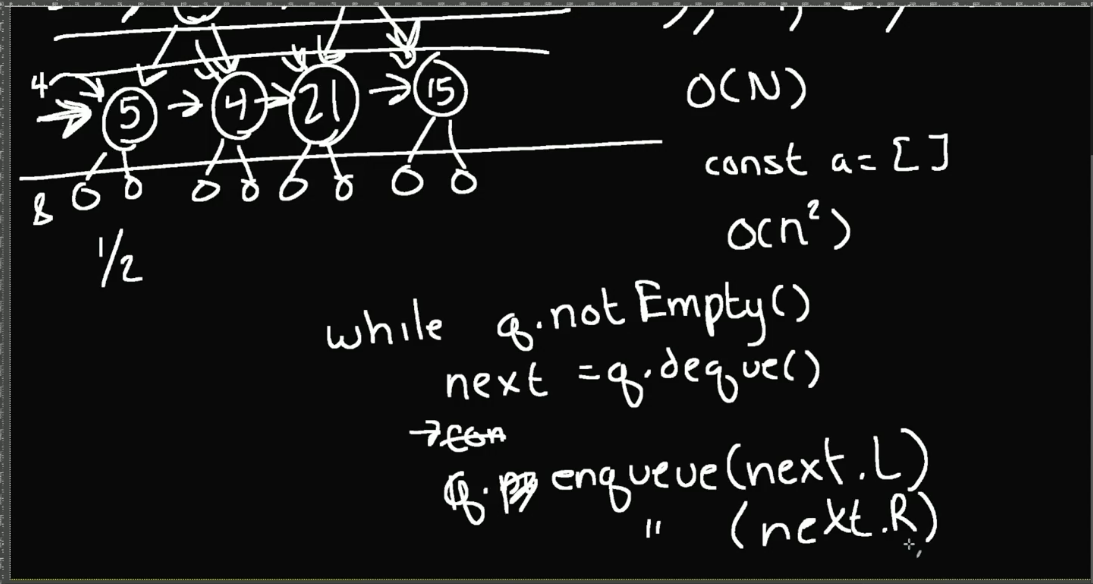 4
5 4 21 15
8
1/2
O(N)
const a = [ ]
O(n²)
while q.notEmpty()
next = q.deque()
q. enqueue(next.L)
" (next.R)